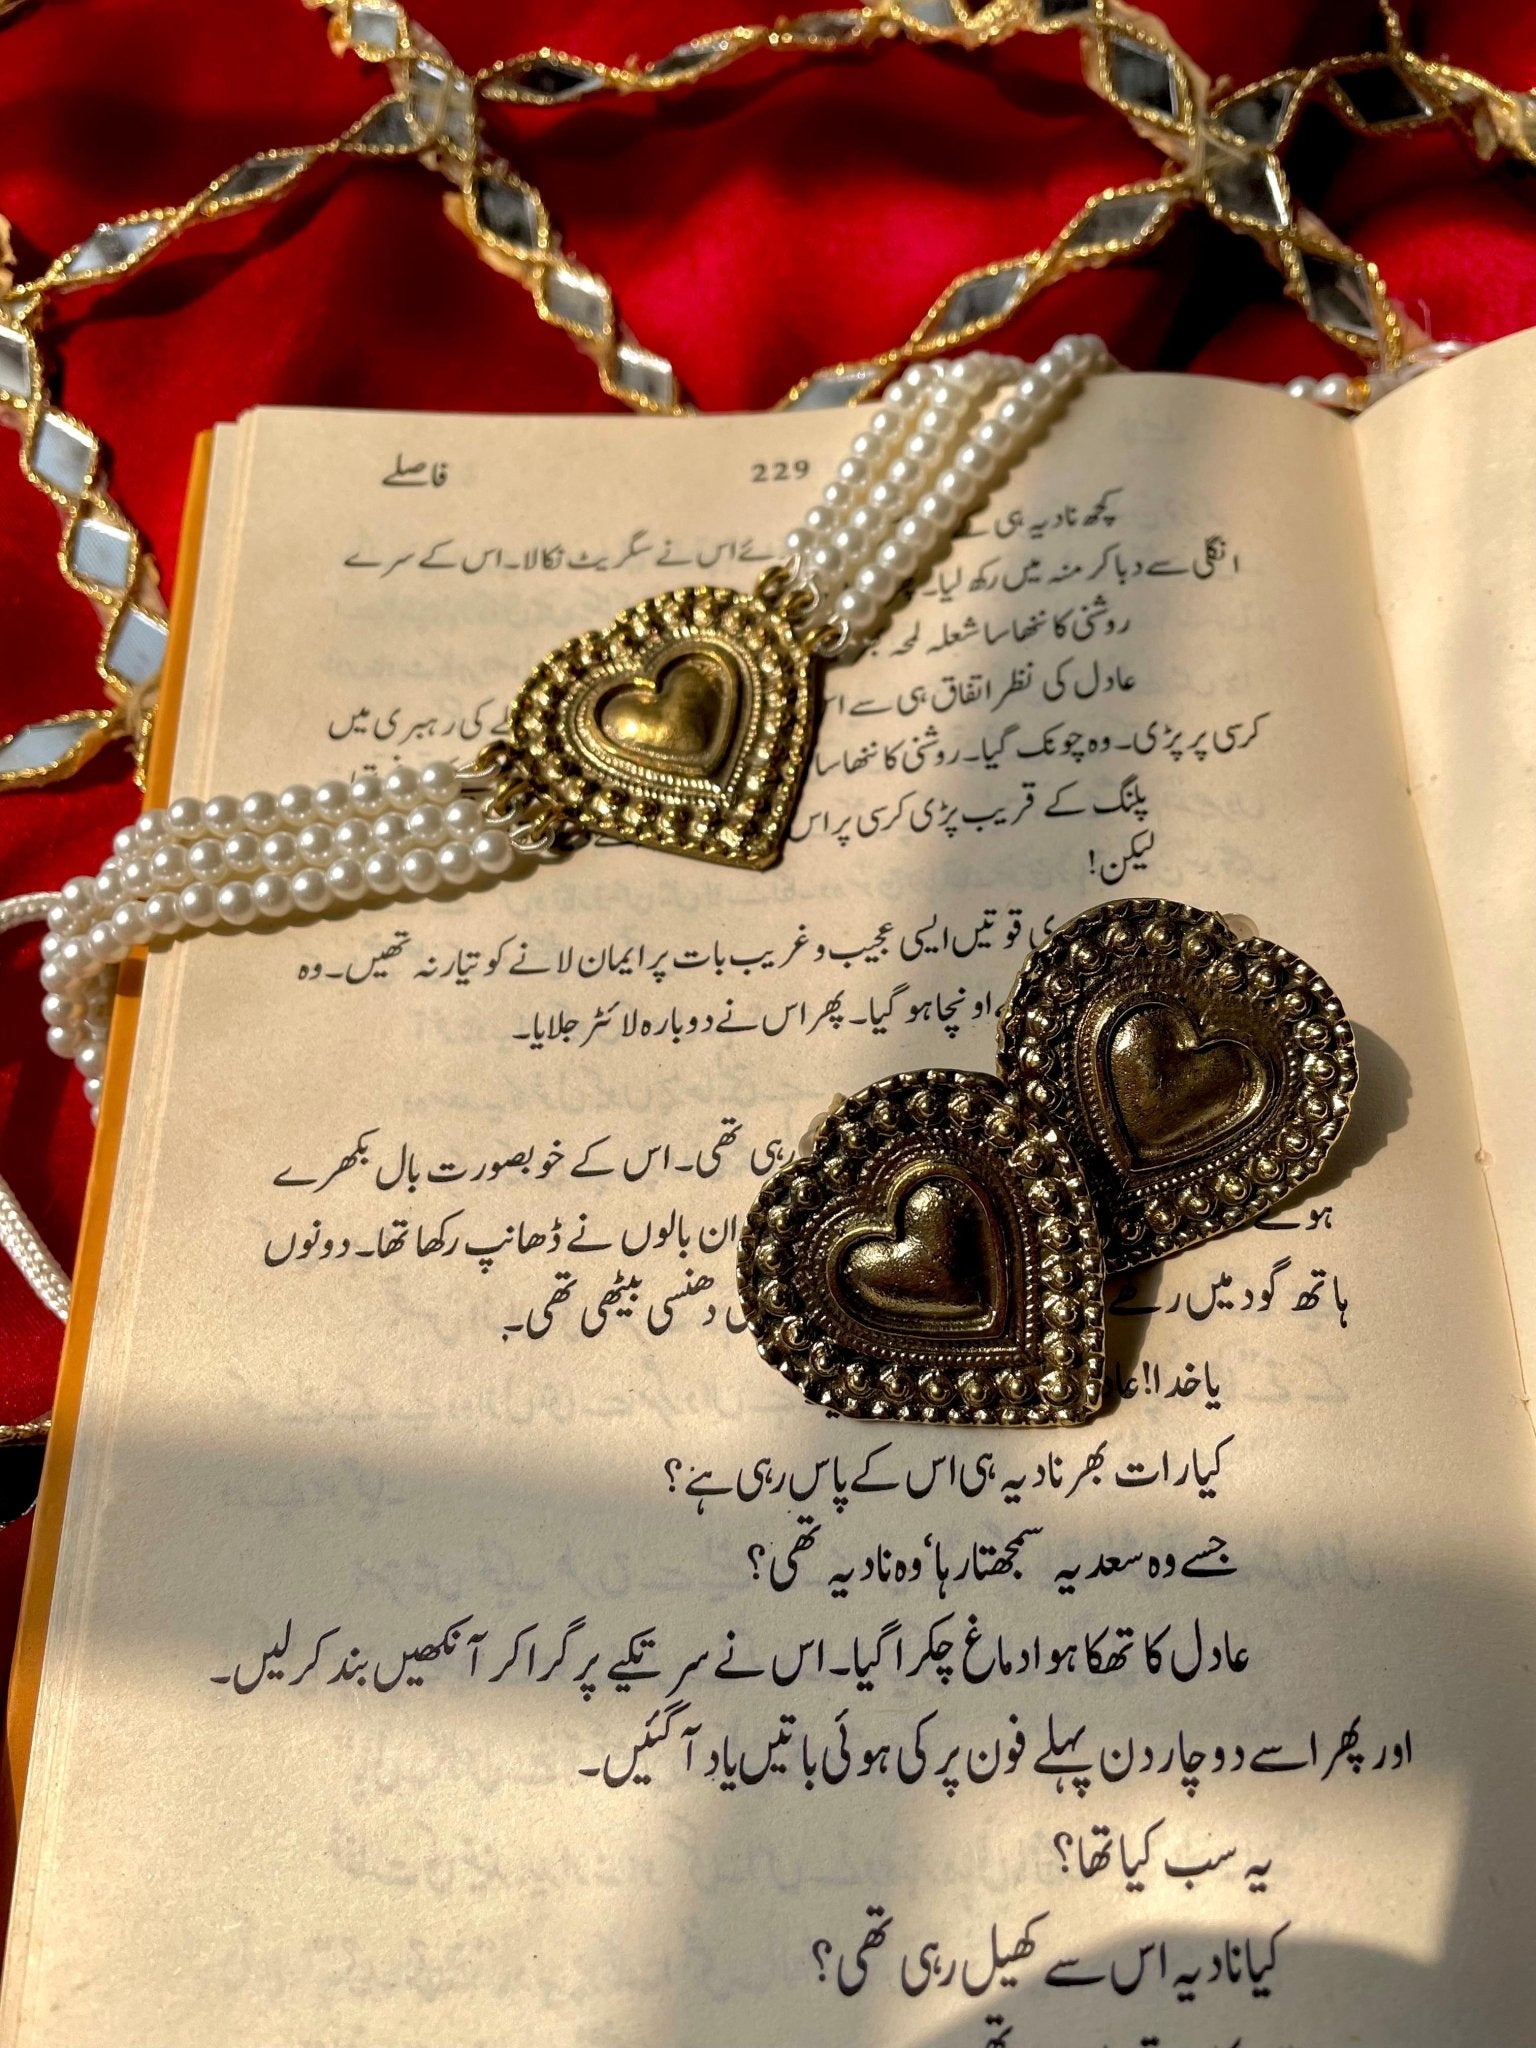 فاصلے 229
کچھ نادیہ ہی
انگلی سے دبا کر منہ میں رکھ لیا۔ اس نے سگریٹ نکالا۔ اس کے سرے
روشنی کا ننھا سا شعلہ لمحہ
عادل کی نظر اتفاق ہی سے
کرسی پر پڑی۔ وہ چونک گیا۔ روشنی کا ننھا سا کی رہبری میں
پلنگ کے قریب پڑی کرسی پر اس
لیکن!
قوتیں ایسی عجیب و غریب بات پر ایمان لانے کو تیار نہ تھیں۔ وہ
اونچا ہو گیا۔ پھر اس نے دوبارہ لائٹر جلایا۔
رہی تھی۔ اس کے خوبصورت بال بکھرے
ہوئے ان بالوں نے ڈھانپ رکھا تھا۔ دونوں
ہاتھ گود میں دھنسی بیٹھی تھی۔
یا خدا!
کیا رات بھر نادیہ ہی اس کے پاس رہی ہے؟
جسے وہ سعدیہ سمجھتا رہا، وہ نادیہ تھی؟
عادل کا تھکا ہوا دماغ چکرا گیا۔ اس نے سر تکیے پر گرا کر آنکھیں بند کر لیں۔
اور پھر اسے دو چار دن پہلے فون پر کی ہوئی باتیں یاد آ گئیں۔
یہ سب کیا تھا؟
کیا نادیہ اس سے کھیل رہی تھی؟